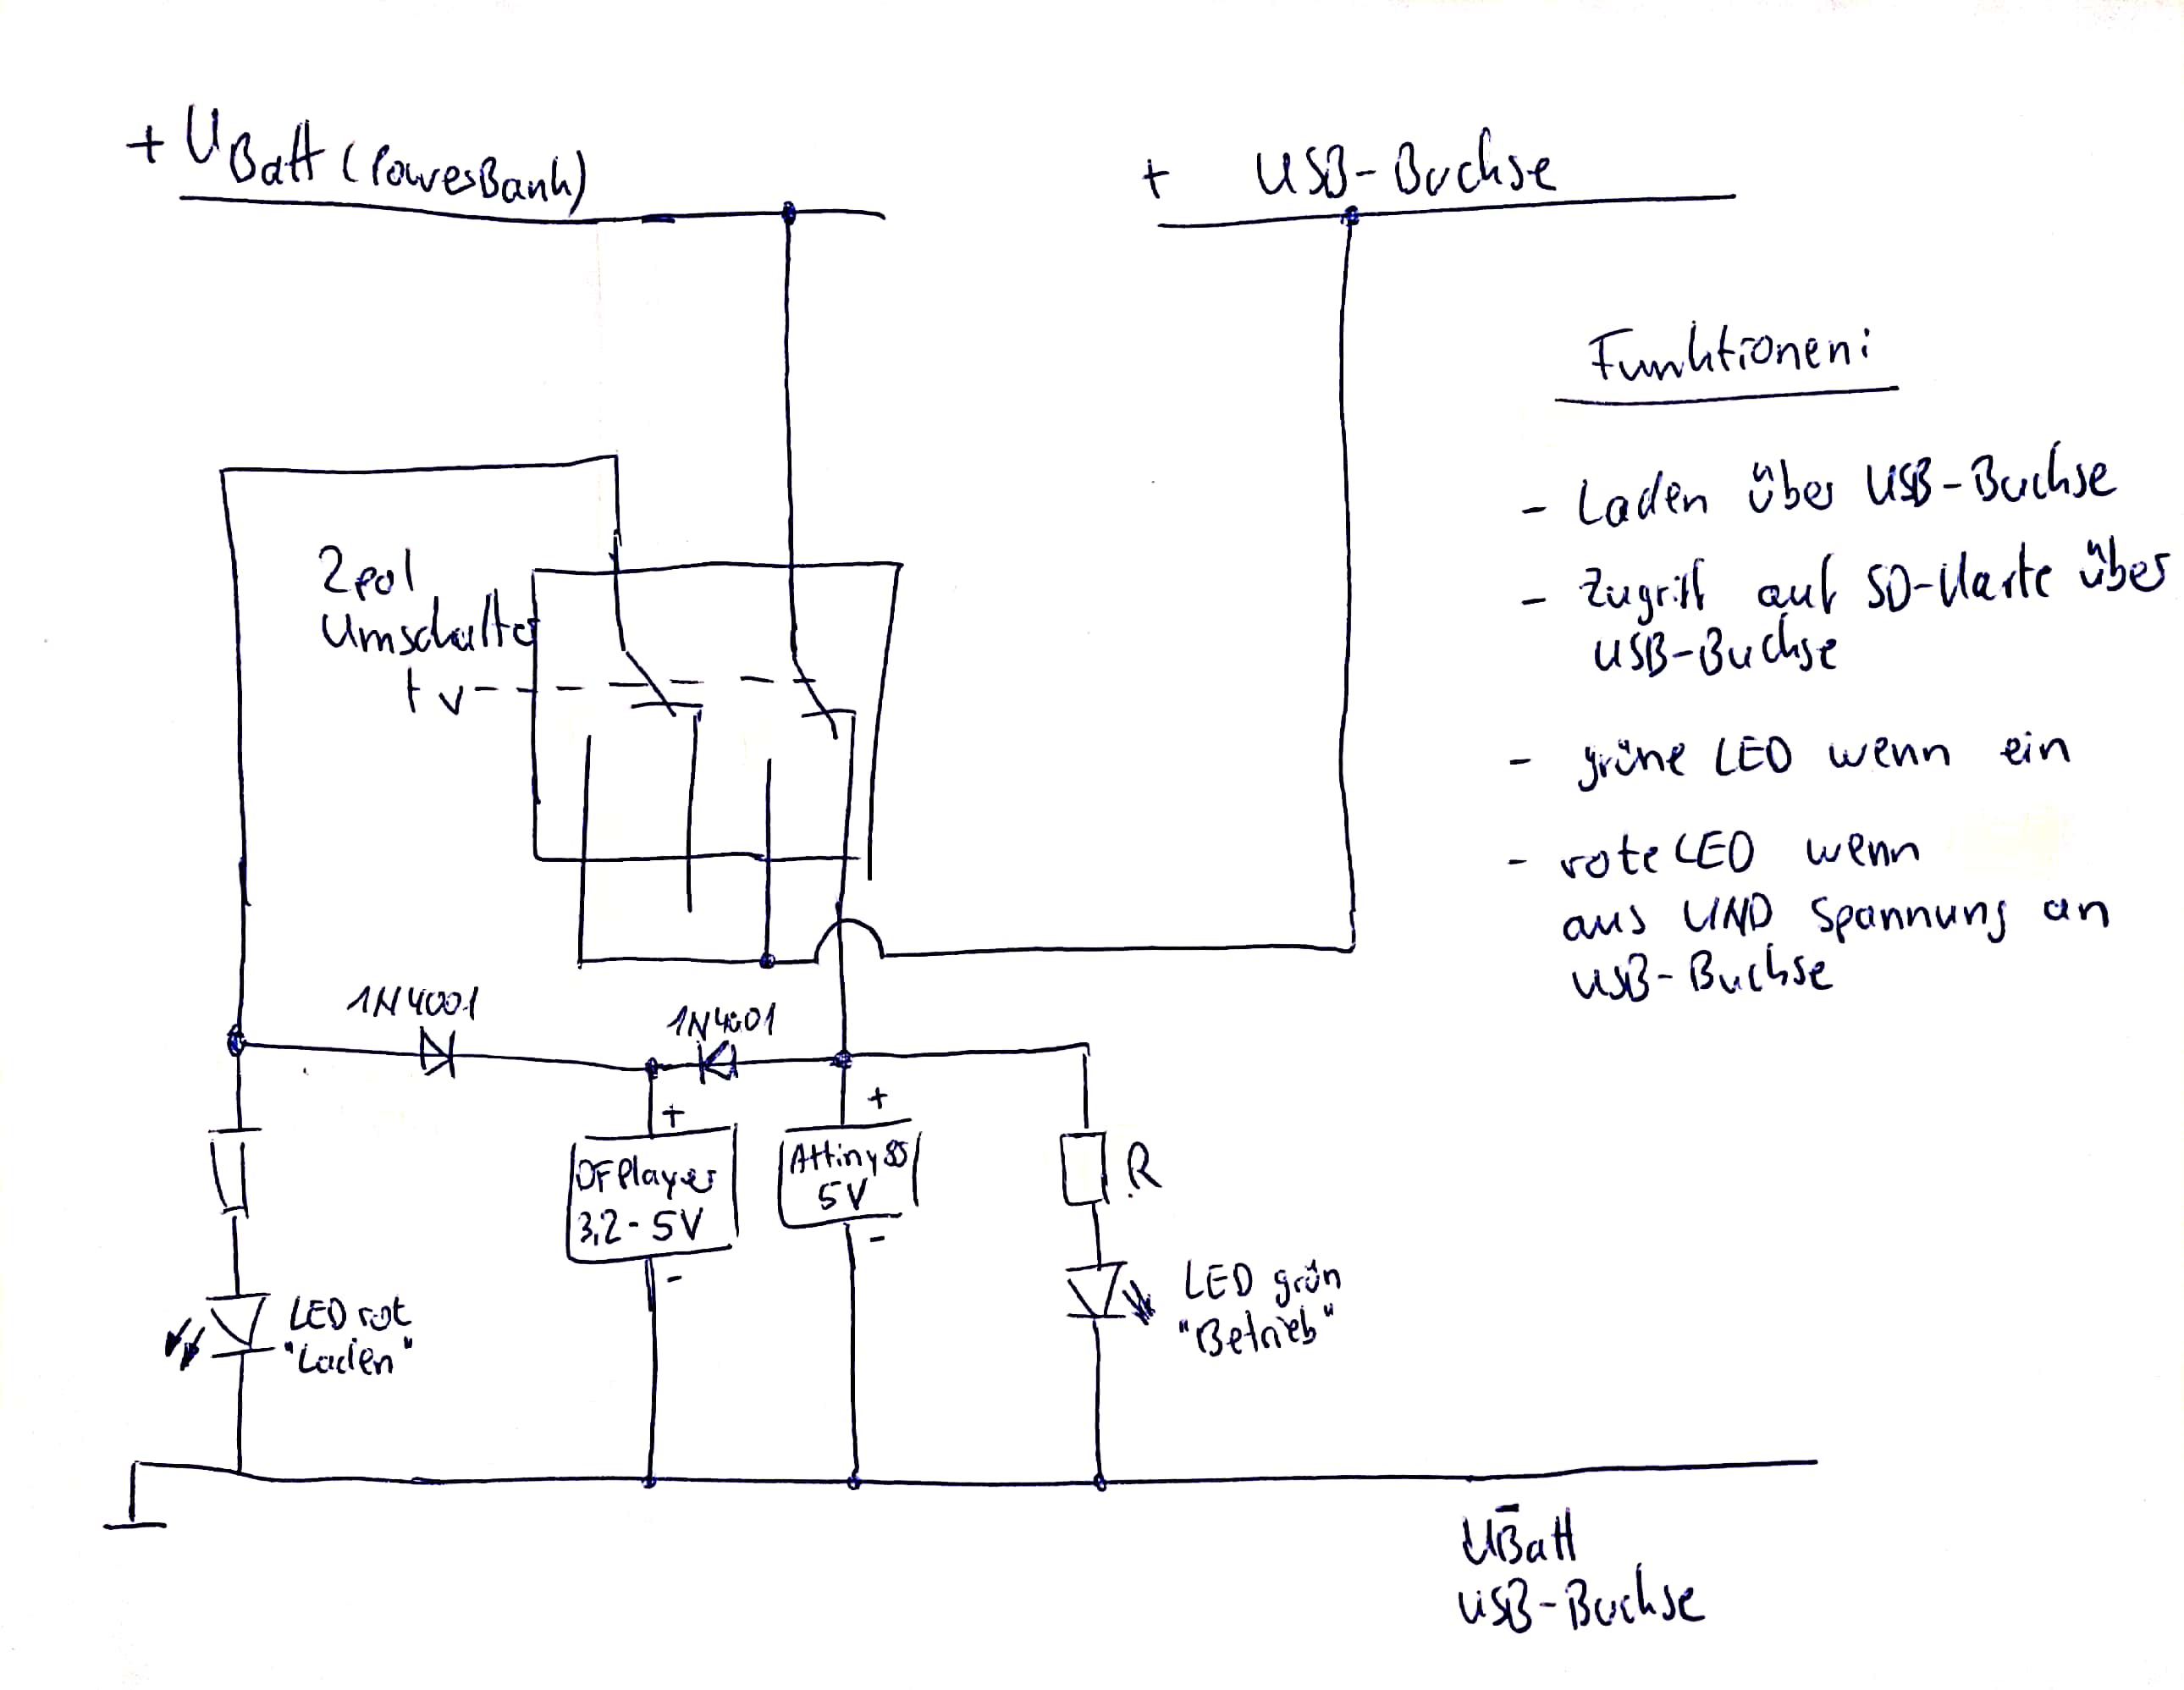 + UBatt (PowerBank)
+ USB-Buchse
Funktionen:
- Laden über USB-Buchse
- Zugriff auf SD-Karte über
USB-Buchse
- grüne LED wenn ein
- rote LED wenn
aus UND Spannung an
USB-Buchse
2pol
Umschalter
1N4001
1N4001
+
+
DFPlayer
3,2 - 5V
ATtiny85
5V
R
-
-
LED rot
"Laden"
LED grün
"Betrieb"
-
UBatt
USB-Buchse